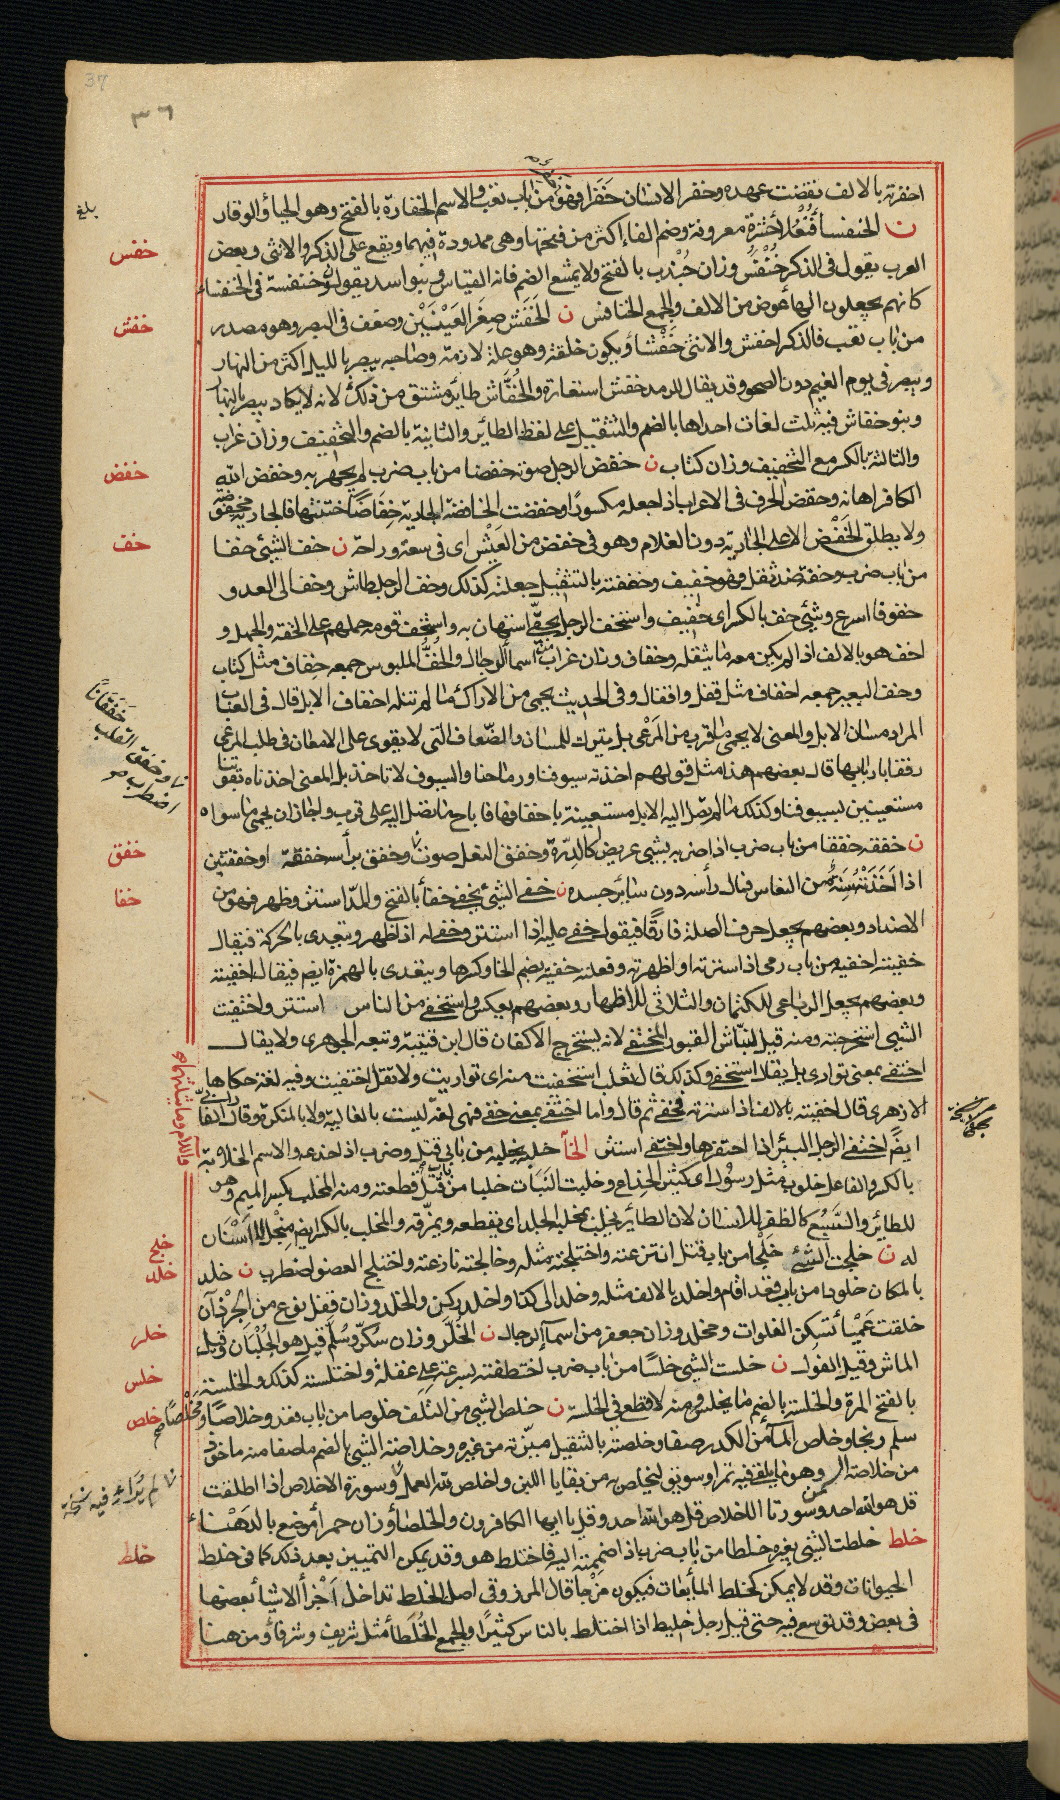 37
٣٦
اخفرته بالالف نقضت عهده وخفر الانسان خَفَرا فهو من باب تعب والاسم الخفارة بالفتح وهو الحياء والوقار
ن الخنفساء فُنْعُلاء حشرة معروفة وضم الفاء اكثر من فتحها وهى ممدودة فيهما ويقع على الذكر والانثى وبعض
العرب يقول فى الذكر خُنْفَس وزان جُنْدب بالفتح ولا يمتنع الضم فانه القياس وبنو اسد يقولون خنفسة فى الخنفساء
كانهم يجعلون الهاء عوض من الالف والجمع الخنافس ن الخَفَش صِغَر العَيْنَيْن وضعف فى البصر وهو مصدر
من باب تعب فالذكر اخفش والانثى خَفْشاء ويكون خلقة وهو علة لازمة وصاحبه يبصر بالليل اكثر من النهار
ويبصر فى يوم الغيم دون الصحو وقد يقال للرمد خفش استعارة والخُفّاش طائر مشتق من ذلك لانه لا يكاد يبصر بالنهار
وبنو خفاش فيه ثلث لغات احداها بالضم والتثقيل على لفظ الطائر والثانية بالضم والتخفيف وزان غراب
والثالثة بالكسر مع التخفيف وزان كتاب ن خفض الرجل صوته خفضا من باب ضرب لم يجهر به وخفض الله
الكافر اهانه وخفض الحرف فى الاعراب اذا جعله مكسورا وخفضت الخافضة الجارية خِفَاضًا ختنتها فالجارية مخفوضة
ولا يطلق الخَفْض الا على الجارية دون الغلام وهو فى خفض من العَيْش اى فى سعة وراحة ن خف الشيئ خفا
من باب ضرب وخفة ضد ثقل فهو خفيف وخففته بالتثقيل جعلته كذلك وخف الرجل طاش وخف الى العدو
خفوفا اسرع وشيئ خف بالكسر اى خفيف واستخف الرجل بحقّى استهان به واستخف قومه حملهم على الخفة والجهل و
اخف هو بالالف اذا لم يكن معه ما يثقله وخفاف وزان غراب من اسماء الرجال والخُفّ الملبوس جمعه خِفاف مثل كتاب
وخف البعير جمعه اخفاف مثل قفل واقفال وفى الحديث يحمى من الاراك ما لم تنله اخفاف الابل قال فى العباب
المراد مسان الابل والمعنى لا يحمى ما قرب من المَرْعى بل يترك للمسان والضّعاف التى لا تقوى على الامعان فى طلب المرعى
رفقا باربابها قال بعضهم هذا مثل قولهم اخذته سيوفنا ورماحنا والسيوف لا تاخذ بل المعنى اخذناه بقوتنا
مستعينين بسيوفنا وكذلك ما لم تصل اليه الابل مستعينة باخفافها فاباح ما تصل اليه على قرب واجاز ان يحمى ما سواه
ن خفقه خفقا من باب ضرب اذا ضربه بشيئ عريض كالدّرة وخفق النعل صوت وخفق برأسه خفقة او خفقتين
اذا اَخَذَتْهُ سِنَةٌ من النعاس فمال رأسه دون سائر جسده ن خفى الشيئ يخفى خفاء بالفتح والمدّ استتر وظهر فهو من
الاضداد وبعضهم يجعل حرف الصلة فارقًا فيقول خفى عليه اذا استتر وخفى له اذا ظهر ويتعدى بالحركة فيقال
خفيته اخفيه من باب رمى اذا سترته او اظهرته وفعلته خفية بضم الخاء وكسرها ويتعدى بالهمزة ايضا فيقال اخفيته
وبعضهم يجعل الرباعى للكتمان والثلاثى للاظهار وبعضهم يعكس واستخفى من الناس استتر واختفيت
الشيئ استخرجته ومنه قيل لنبّاش القبور المختفى لانه يستخرج الاكفان قال ابن قتيبة وتبعه الجوهرى ولا يقال
اختفى بمعنى توارى بل يقال استخفى وكذلك قال ثعلب استخفيت منه اى تواريت ولا تقل اختفيت وفيه لغة حكاها
الازهرى قال اخفيته بالالف اذا سترته فخفى ثم قال واما اختفى بمعنى خفى فهى لغة ليست بالعالية ولا بالمنكرة وقال الفارابى
ايضً اختفى الرجل البئر اذا احتفرها واختفى استتر الخاء خلبه يخلبه من بابى قتل وضرب اذا خدعه والاسم الخلابة
بالكسر والفاعل خلوب مثل رسول اى كثير الخداع وخلبت النَبَات خلبا من باب قتل قطعته ومنه المخلب بكسر الميم وهو
للطائر والسَّبُع كالظفر للانسان لان الطائر يخلب بمخلبه الجلد اى يقطعه ويمزّقه والمخلب بالكسر ايض مِنْجل لا اَسْنَان
له ن خلجت الشيئ خَلْجا من باب قتل انتزعته واختلجته مثله وخالجته نازعته واختلج العضو اضطرب ن خلد
بالمكان خلودا من باب قعد اقام واخلد بالالف مثله وخلد الى كذا واخلد ركن والخلد وزان قفل نوع من الجُرْذان
خلقت عَمْيَاء تسكن الفلوات ومخلد وزان جعفر من اسماء الرجال ن الخُلّر وزان سُكّر وسُلّم قيل هو الجُلْبَان وقيل
الماش وقيل الفول ن خلست الشيئ خلسًا من باب ضرب اختطفته بسرعة على غفلة واختلسته كذلك والخلسة
بالفتح المرة والخلسة بالضم ما يخلس ومنه لا قطع فى الخلسة ن خلص الشيئ من التلف خلوصا من باب قعد وخلاصًا ومَخْلَصًا
سلم ونجا وخلص الماء من الكدر صفا وخلصته بالتثقيل ميّزته من غيره وخلاصة الشيئ بالضم ما صفا منه ماخوذ
من خلاصة السمن وهو ما يلقى فيه تمر او سويق ليخلص به من بقايا اللبن واخلص لله العمل وسورة الاخلاص اذا اطلقت
قل هو الله احد وسورتا الاخلاص قل هو الله احد وقل يا ايها الكافرون والخلصاء وزان حمراء موضع بالدَهْناء
خلط خلطت الشيئ بغيره خلطا من باب ضرب اذا ضممته اليه فاختلط هو وقد يمكن التمييز بعد ذلك كما فى خلط
الحيوانات وقد لا يمكن كخلط المائعات فيكون مَزْجا قال المرزوقى اصل الخلط تداخل اَجْزاء الاشياء بعضها
فى بعض وقد توسع فيه حتى قيل رجل خليط اذا اختلط بالناس كثيرًا والجمع الخُلَطَاء مثل شريف وشرفاء ومن هنا
بلغ
خفس
خفش
خفض
خف
خَفَقَانًا
وخفق القلب
اضطرب
خفق
خفا
خلج
خلد
خلر
خلس
خلص
خلط